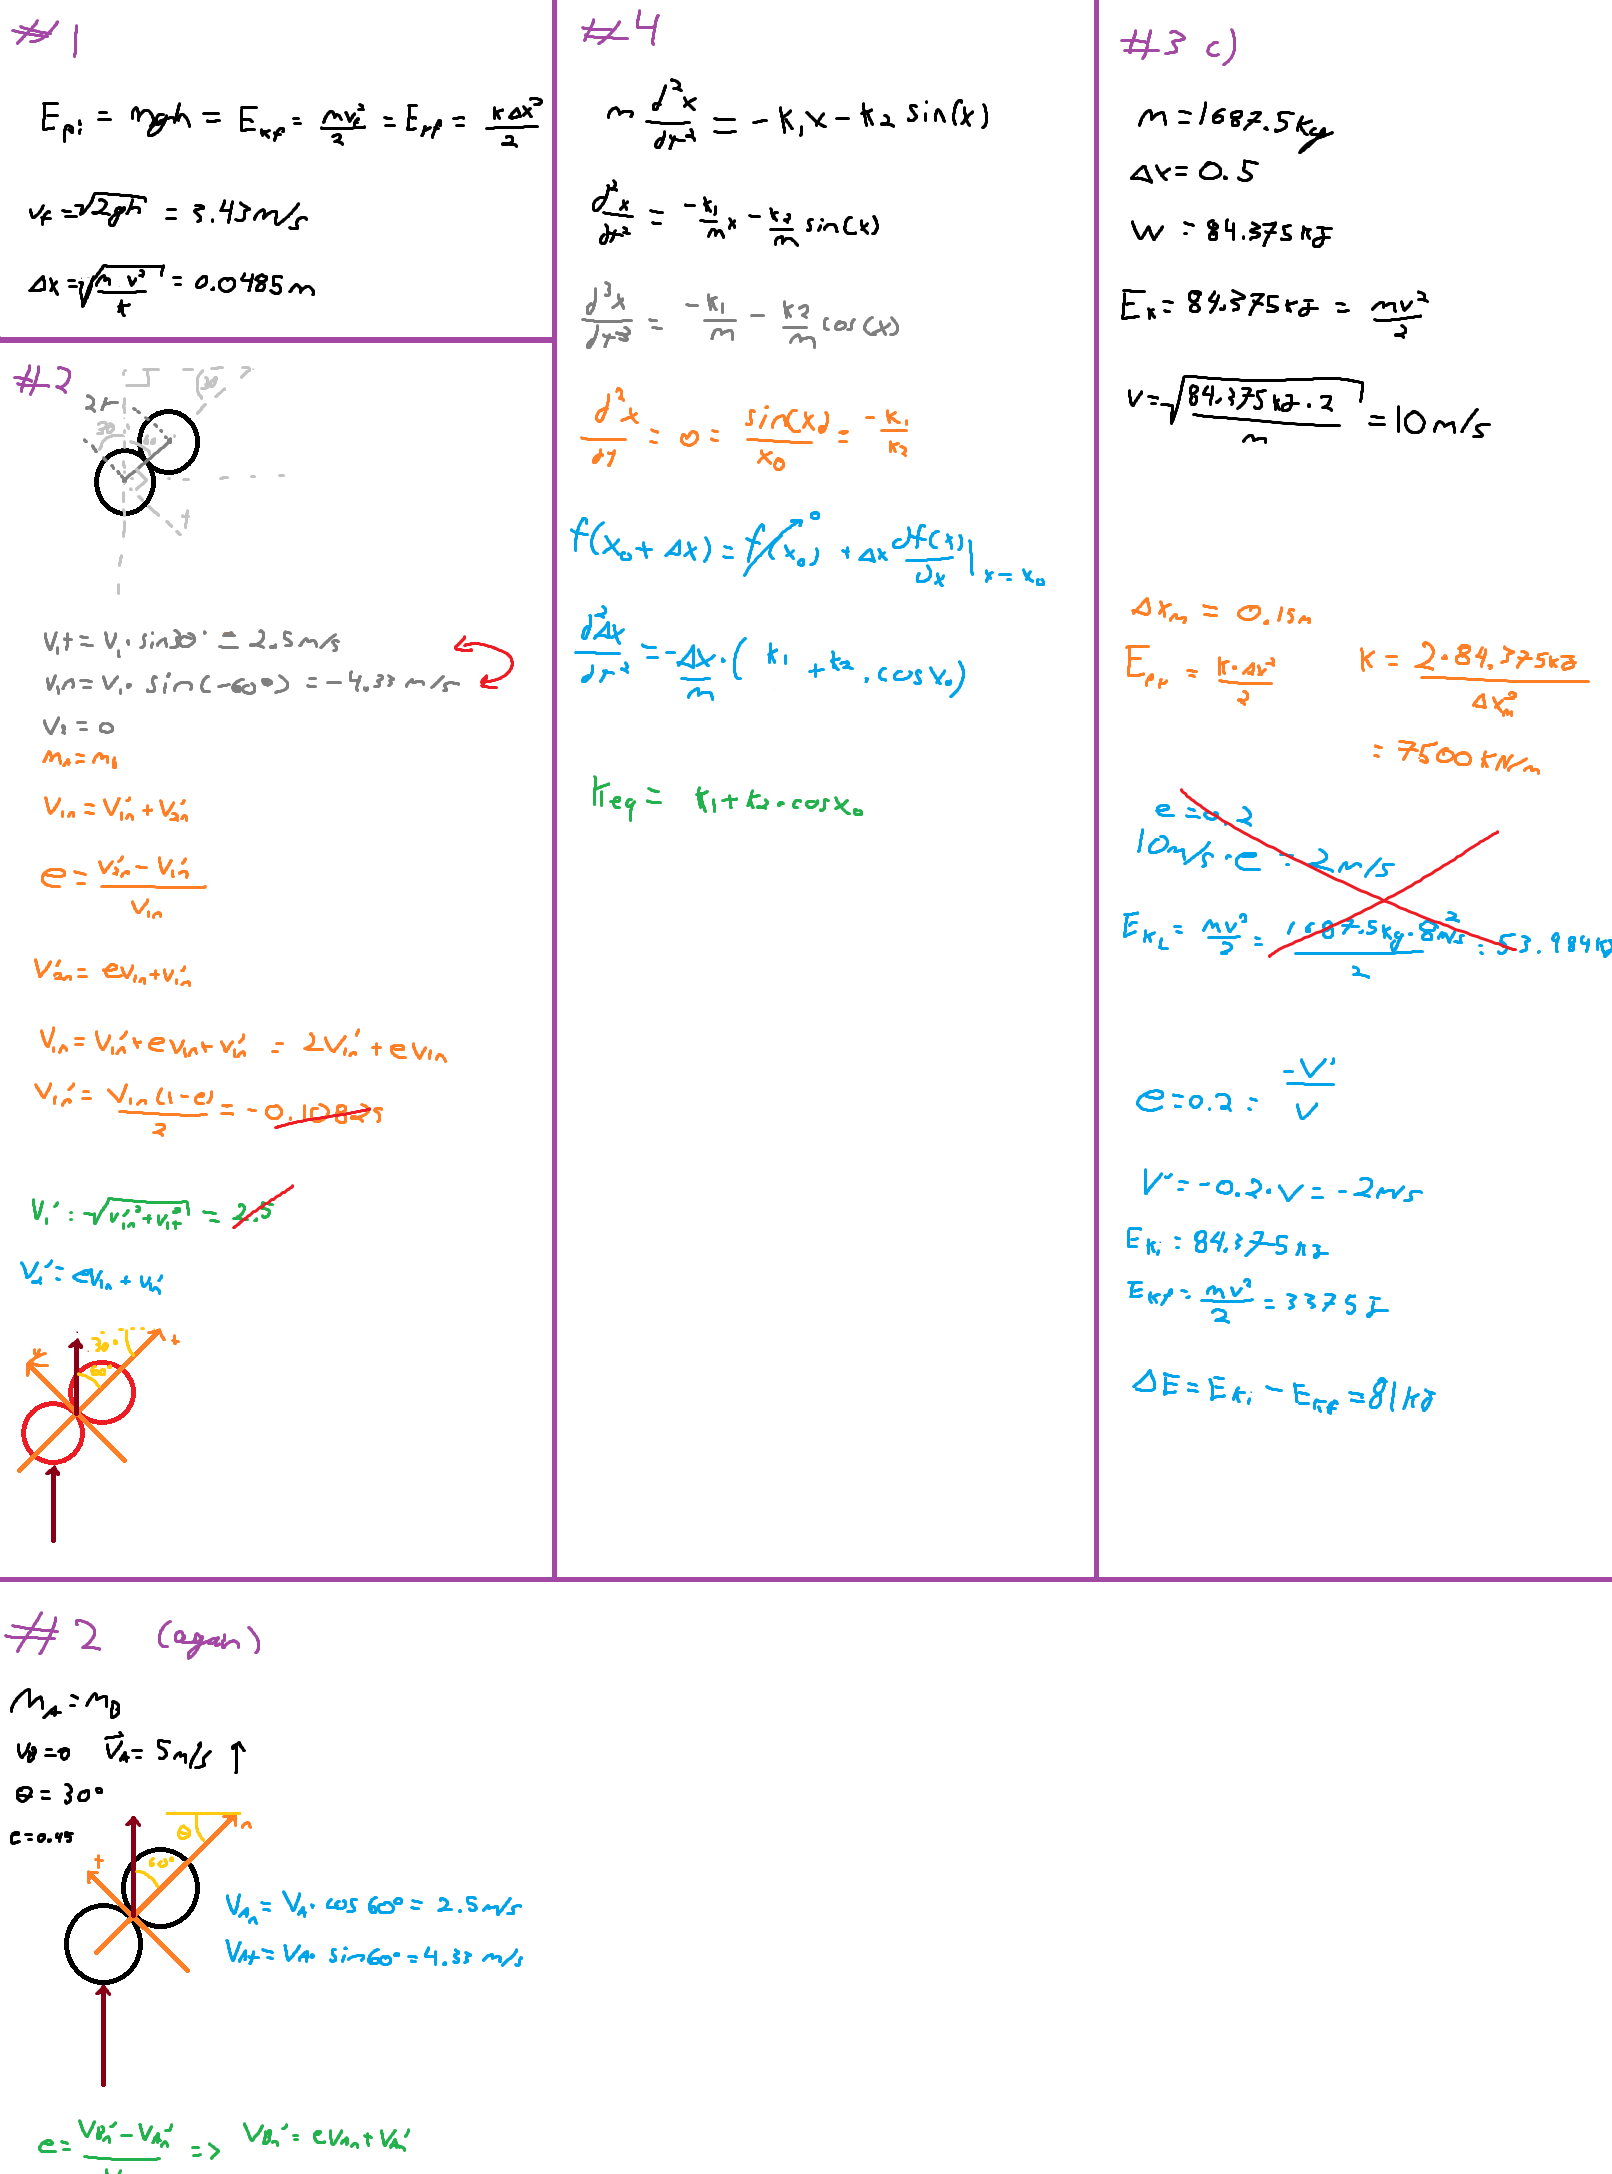 #1
E_pi = mgh = E_kf = mv_f²/2 = E_pf = kΔx²/2
v_f = √(2gh) = 3.43 m/s
Δx = √(m v²/k) = 0.0485 m
#2
30 ?
2r
30 60
t
V₁t = V₁ · sin30° = 2.5 m/s
V₁n = V₁ · sin(-60°) = -4.33 m/s
V₂ = 0
m_A = m_B
V₁n = V₁n' + V₂n'
e = (V₂n' - V₁n')/V₁n
V₂n' = eV₁n + V₁n'
V₁n = V₁n' + eV₁n + V₁n' = 2V₁n' + eV₁n
V₁n' = V₁n(1-e)/2 = -0.10825
V₁' = √(V₁n'² + V₁t²) = 2.5
V₂' = eV₁n + V₁n'
30° t
60°
#4
m d²x/dt² = -k₁x - k₂ sin(x)
d²x/dt² = -k₁/m x - k₂/m sin(x)
d³x/dt³ = -k₁/m - k₂/m cos(x)
d²x/dt = 0 = sin(x₀)/x₀ = -k₁/k₂
f(x₀ + Δx) = f(x₀) → 0 + Δx df(x)/dx |x=x₀
d²Δx/dt² = -Δx/m · (k₁ + k₂ · cosx₀)
k_eq = k₁ + k₂ · cosx₀
#3 c)
m = 1687.5 kg
Δx = 0.5
W = 84.375 kJ
E_k = 84.375 kJ = mv²/2
v = √(84.375 kJ · 2/m) = 10 m/s
Δx_m = 0.15m
E_pf = k·Δx²/2 k = 2·84.375kJ/Δx_m²
= 7500 kN/m
e = 0.2
10m/s · e = 2 m/s
E_kL = mv²/2 = 1687.5kg · 8m/s²/2 = 53.984 kJ
e = 0.2 = -V'/V
V' = -0.2 · V = -2m/s
E_ki = 84.375 kJ
E_kf = mv²/2 = 3375 J
ΔE = E_ki - E_kf = 81 kJ
#2 (again)
m_A = m_B
v_B = 0 V⃗_A = 5 m/s ↑
θ = 30°
e = 0.45
θ n
t 60°
V_An = V_A · cos 60° = 2.5 m/s
V_At = V_A · sin60° = 4.33 m/s
e = (V_Bn' - V_An')/V => V_Bn' = eV_An + V_An'